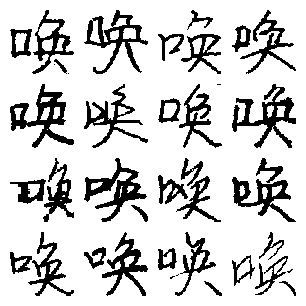 唤唤唤唤
唤唤唤唤
唤唤唤唤
唤唤唤唤